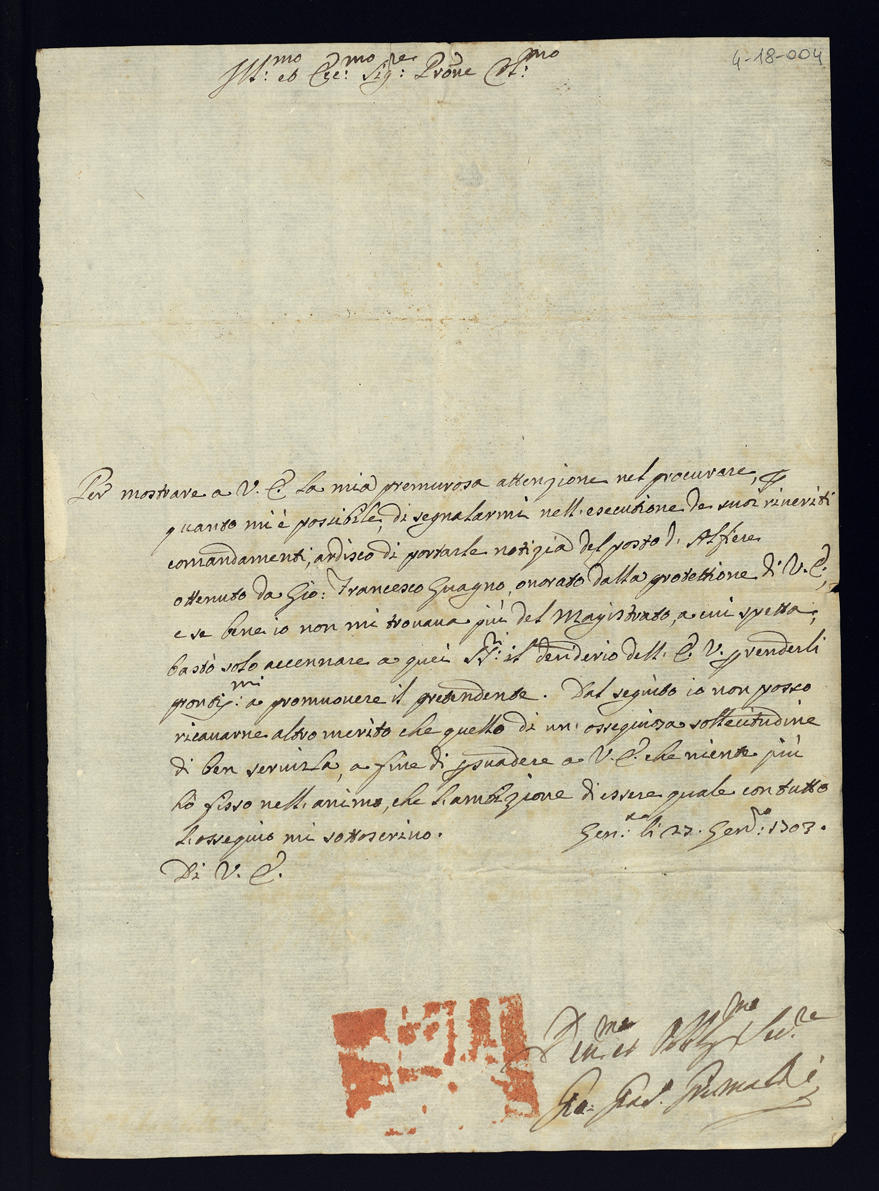 4-18-004
Ill:mo et Ecc:mo Sig:re Prone Col:mo
Per mostrare a V. E. la mia premurosa attenzione nel procurare,
quanto mi è possibile, di segnalarmi nell'esecutione de suoi riveriti
comandamenti, ardisco di portarle notizia del posto d'Alfiere
ottenuto da Gio: Francesco Guagno, onorato dalla protettione di V. E.,
e se bene io non mi trovava più del Magistrato, a cui spetta,
bastò solo accennare a quei SS:ri il desiderio dell'E. V. per renderli
prontiss:mi a promuovere il pretendente. Dal seguito io non posso
ricavarne altro merito che quello di un'ossequiosa sollecitudine
di ben servirla, a fine di persuadere a V. E. che niente più
hò fisso nell'animo, che l'ambizione di essere quale con tutto
l'ossequio mi sottoscrivo. Gen:a li 27. Gen:ro 1703.
Di V. E.
Div:mo et Obblig:mo Ser:re
Gio: Grimaldi